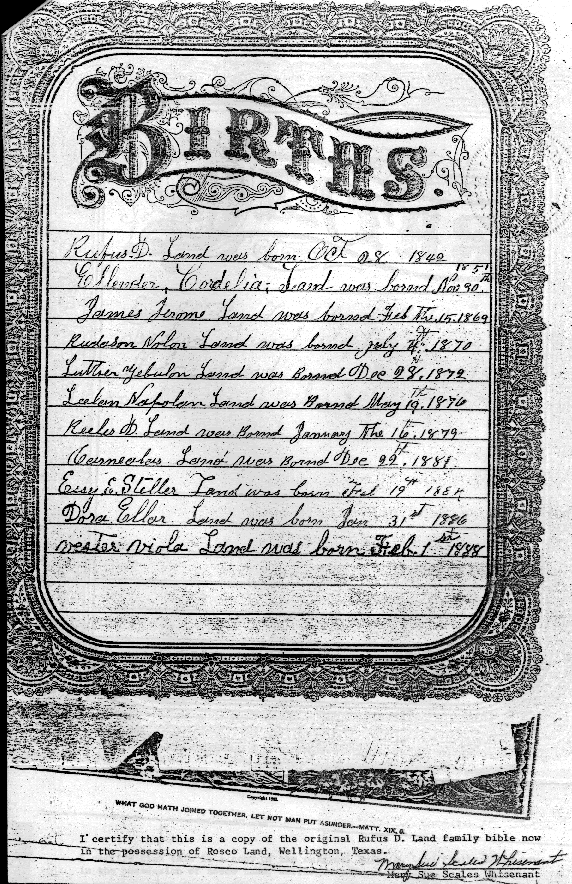 BIRTHS.
Rufus D. Land was born Oct 28 1842
Ellender, Cordelia; Land was bornd Nov 30th 1851
James Jerome Land was bornd Feb the 15. 1869
Land was bornd July 4th. 1870
Luther Zebulon Land was Bornd Dec 28th. 1872
Leelan Napolan Land was Bornd May 19th. 1876
D. Land was Bornd January the 16. 1879
Land was Bornd Dec 22th. 1881
E. Steller Land was born Feb 19th
Dora Ellar Land was born Jan 31st 1886
vester viola Land was born Feb. 1st 1888
Copyright
WHAT GOD HATH JOINED TOGETHER, LET NOT MAN PUT ASUNDER.—MATT. XIX, 6.
I certify that this is a copy of the original Rufus D. Land family bible now
in the possession of Rosco Land, Wellington, Texas.
Mary Sue Scales Whisenant
Mary Sue Scales Whisenant